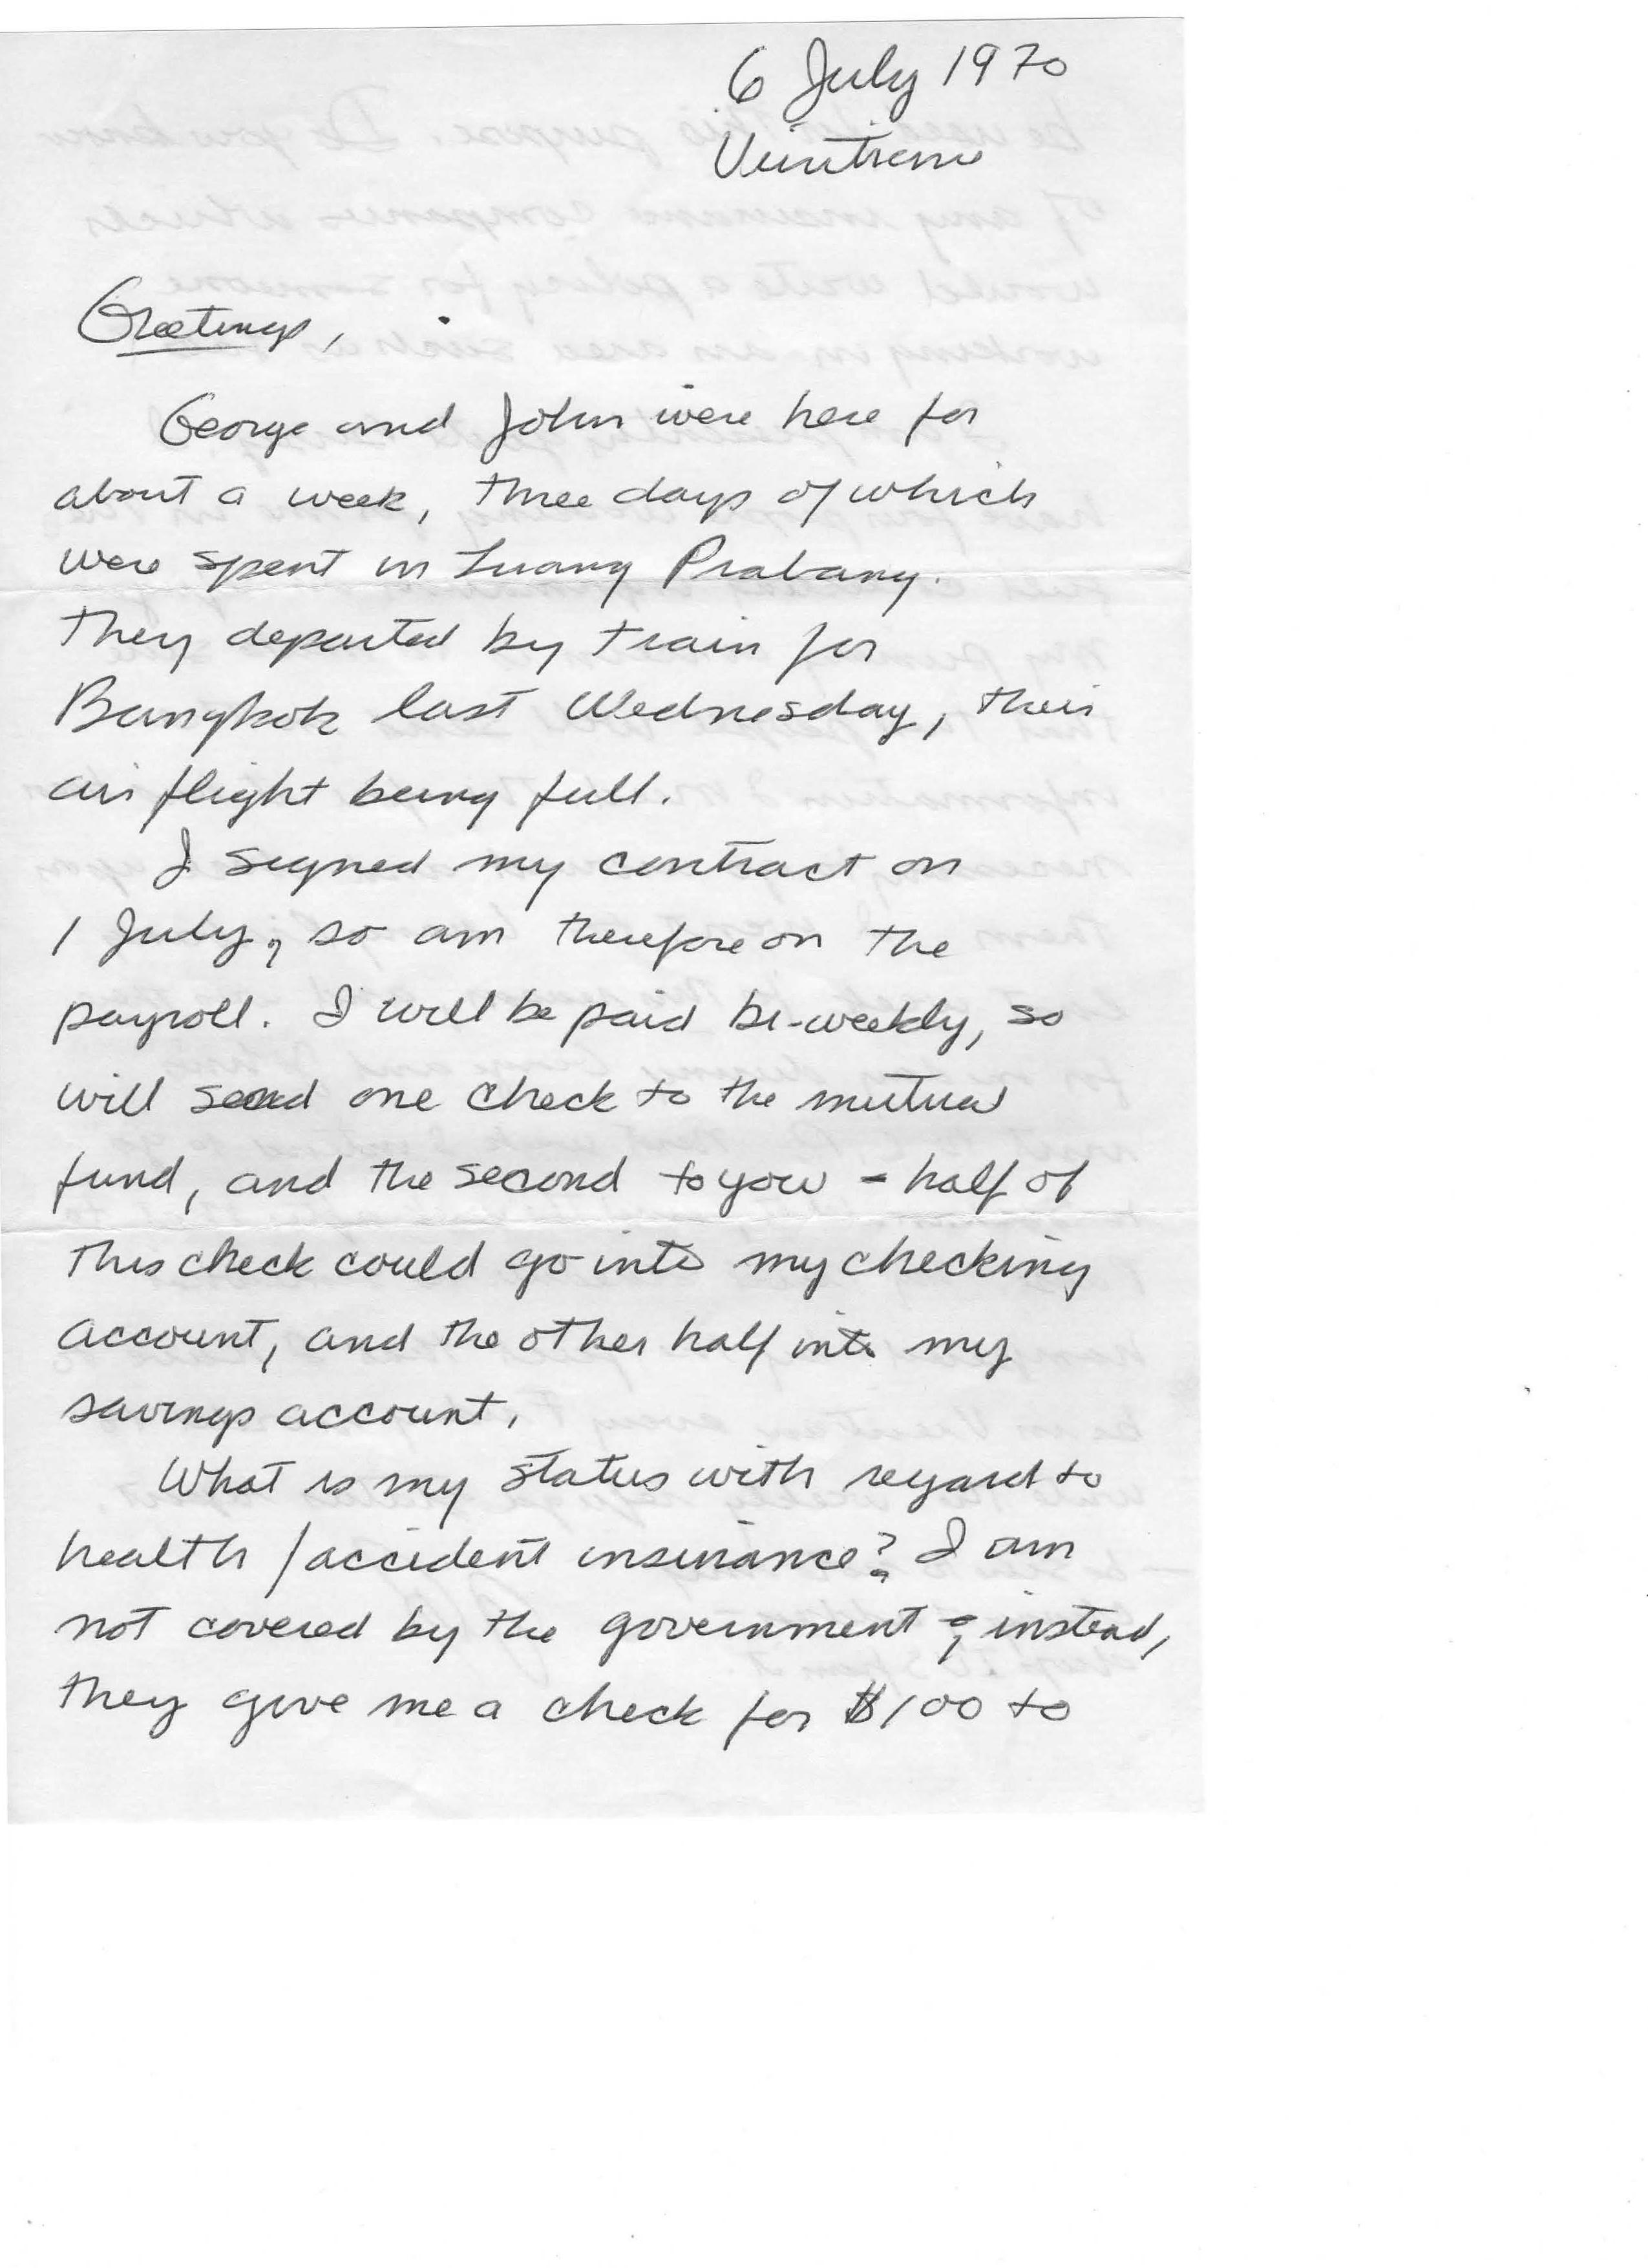 6 July 1970
Vientiane
Greetings,
George and John were here for
about a week, three days of which
were spent in Luang Prabang.
They departed by train for
Bangkok last Wednesday, their
air flight being full.
I signed my contract on
1 July, so am therefore on the
payroll. I will be paid bi-weekly, so
will send one check to the mutual
fund, and the second to you - half of
this check could go into my checking
account, and the other half into my
savings account.
What is my status with regard to
health / accident insurance? I am
not covered by the government; instead,
they give me a check for $100 to